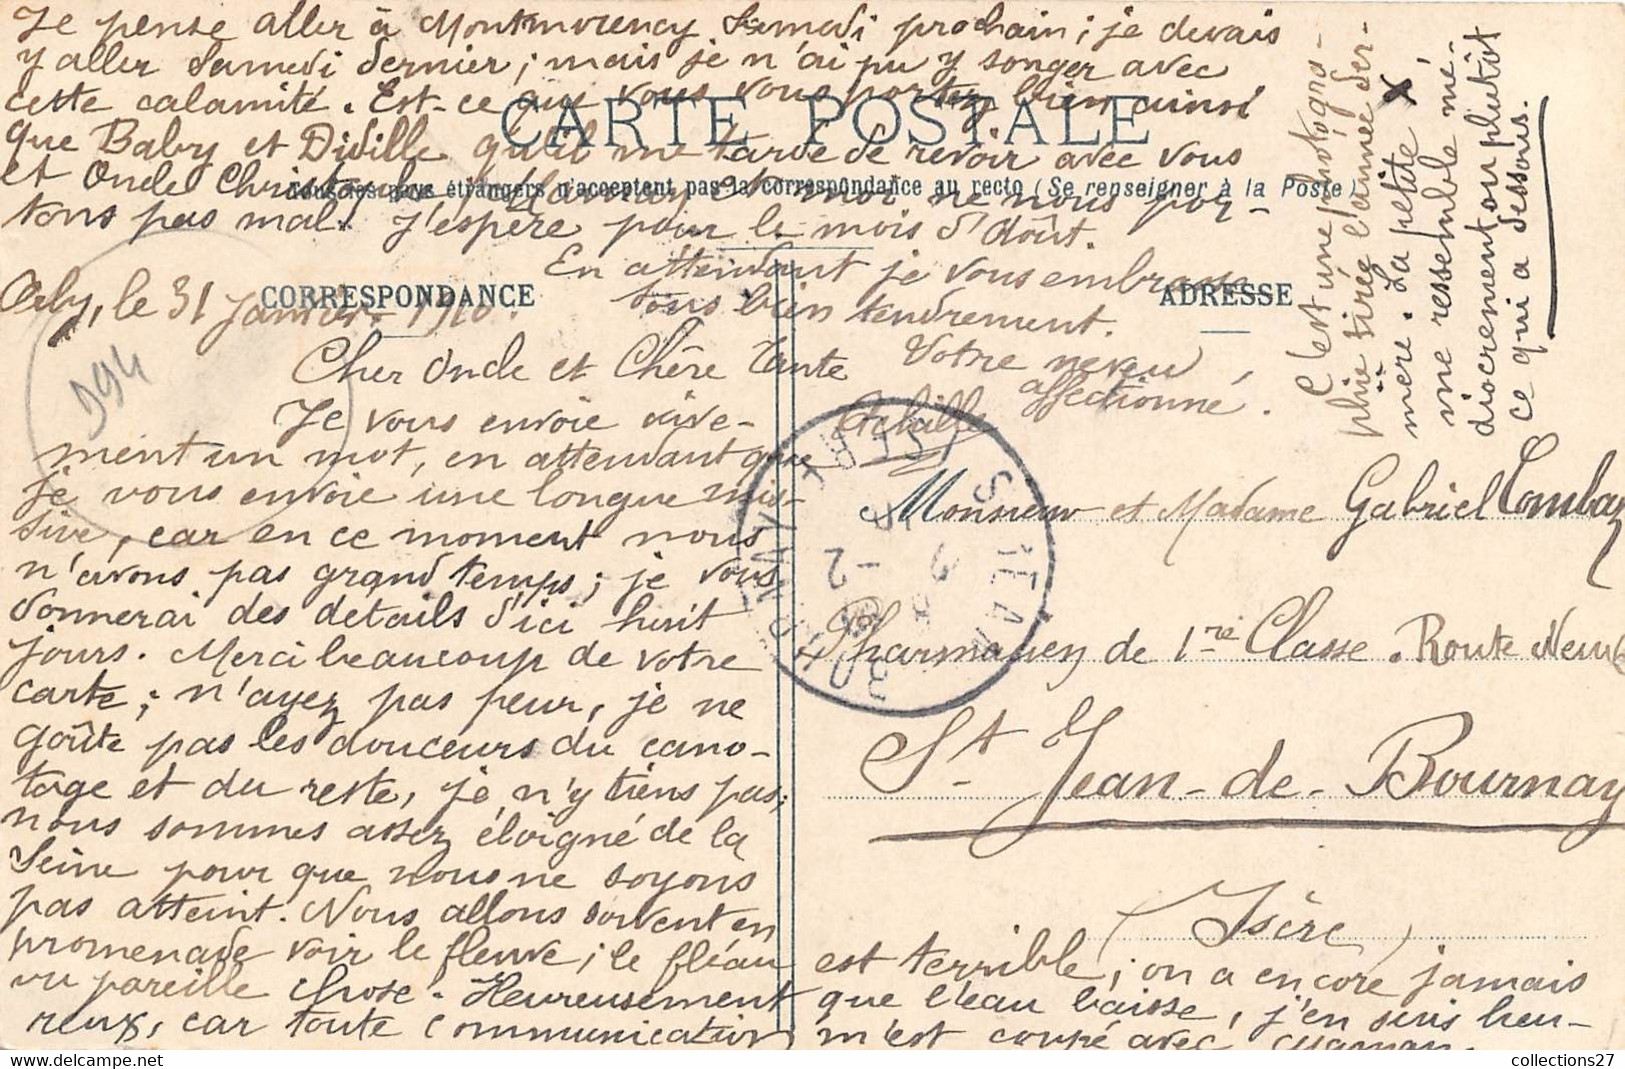 Orly, le 31 Janvier 1910.
Cher Oncle et Chère Tante
Je vous envoie vive-
ment un mot, en attendant que
je vous envoie une longue mis-
sive, car en ce moment nous
n'avons pas grand temps; je vous
donnerai des details d'ici huit
jours. Merci beaucoup de votre
carte; n'ayez pas peur, je ne
goûte pas les douceurs du cano-
tage et du reste, je n'y tiens pas;
nous sommes assez éloigné de la
Seine pour que nous ne soyons
pas atteint. Nous allons souvent en
promenade voir le fleuve; le fléau
est terrible; on a encore jamais
vu pareille chose. Heureusement
que l'eau baisse, j'en suis heu-
reux, car toute communication
m'est coupé avec
Je pense aller à Montmorency Samedi prochain; je devais
y aller Samedi dernier; mais je n'ai pu y songer avec
cette calamité. Est-ce que vous vous portez bien ainsi
que Baby et Didille qu'il me tarde de revoir avec vous
et Oncle et moi ne nous por-
tons pas mal. J'espère pour le mois d'Août.
En attendant je vous embrasse
tous bien tendrement.
Votre neveu
affectionné.
Achille
CARTE POSTALE
Tous les pays étrangers n'acceptent pas la correspondance au recto (Se renseigner à la Poste)
CORRESPONDANCE
ADRESSE
C'est une photogra-
phie tirée l'année der-
nière. La petite X
me ressemble mé-
diocrement ou plutôt
ce qui a dessous.
Monsieur et Madame Gabriel
Pharmacien de 1re Classe. Route Neuve
St Jean-de-Bournay
(Isère)
994
ISÈRE
collections27